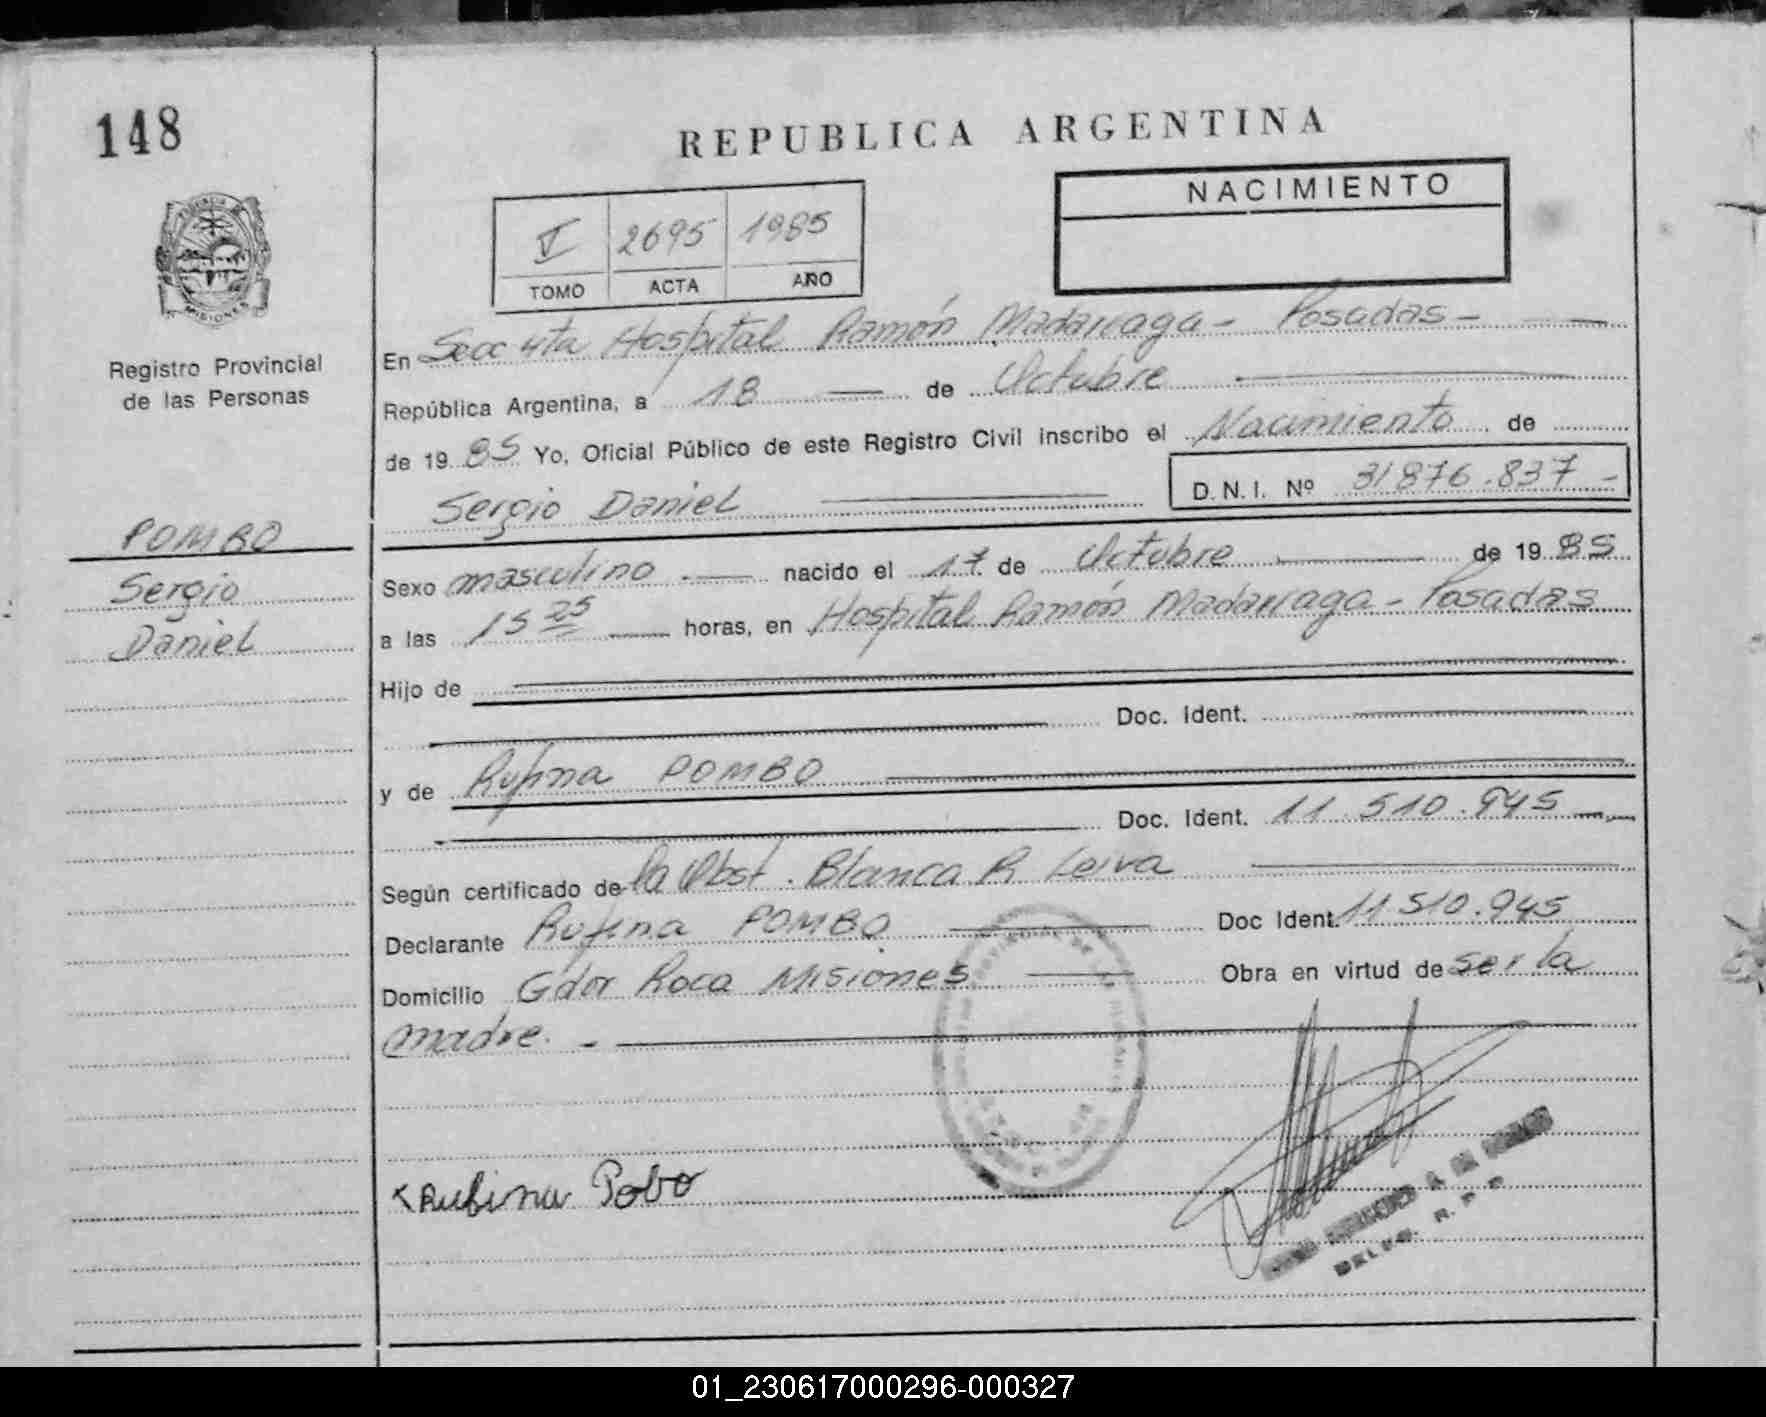 148
REPUBLICA ARGENTINA
NACIMIENTO
2695 1985
TOMO ACTA AÑO
MISIONES
Registro Provincial
de las Personas
En Secc 4ta Hospital Ramón Madariaga - Posadas -
República Argentina, a 18 de Octubre
de 19 85 Yo, Oficial Público de este Registro Civil inscribo el Nacimiento de
D.N.I. Nº 31876.837 -
Sergio Daniel
POMBO
Sergio
Daniel
Sexo masculino nacido el 17 de Octubre de 19 85
a las 15 25 horas, en Hospital Ramón Madariaga - Posadas
Hijo de
Doc. Ident.
y de Rufina POMBO
Doc. Ident. 11.510.945
Según certificado de la Obst. Blanca R Leiva
Declarante Rufina POMBO Doc Ident. 11510.945
Domicilio Gdor Roca Misiones Obra en virtud de ser la
madre. -
Rubina Pobo
01_230617000296-000327